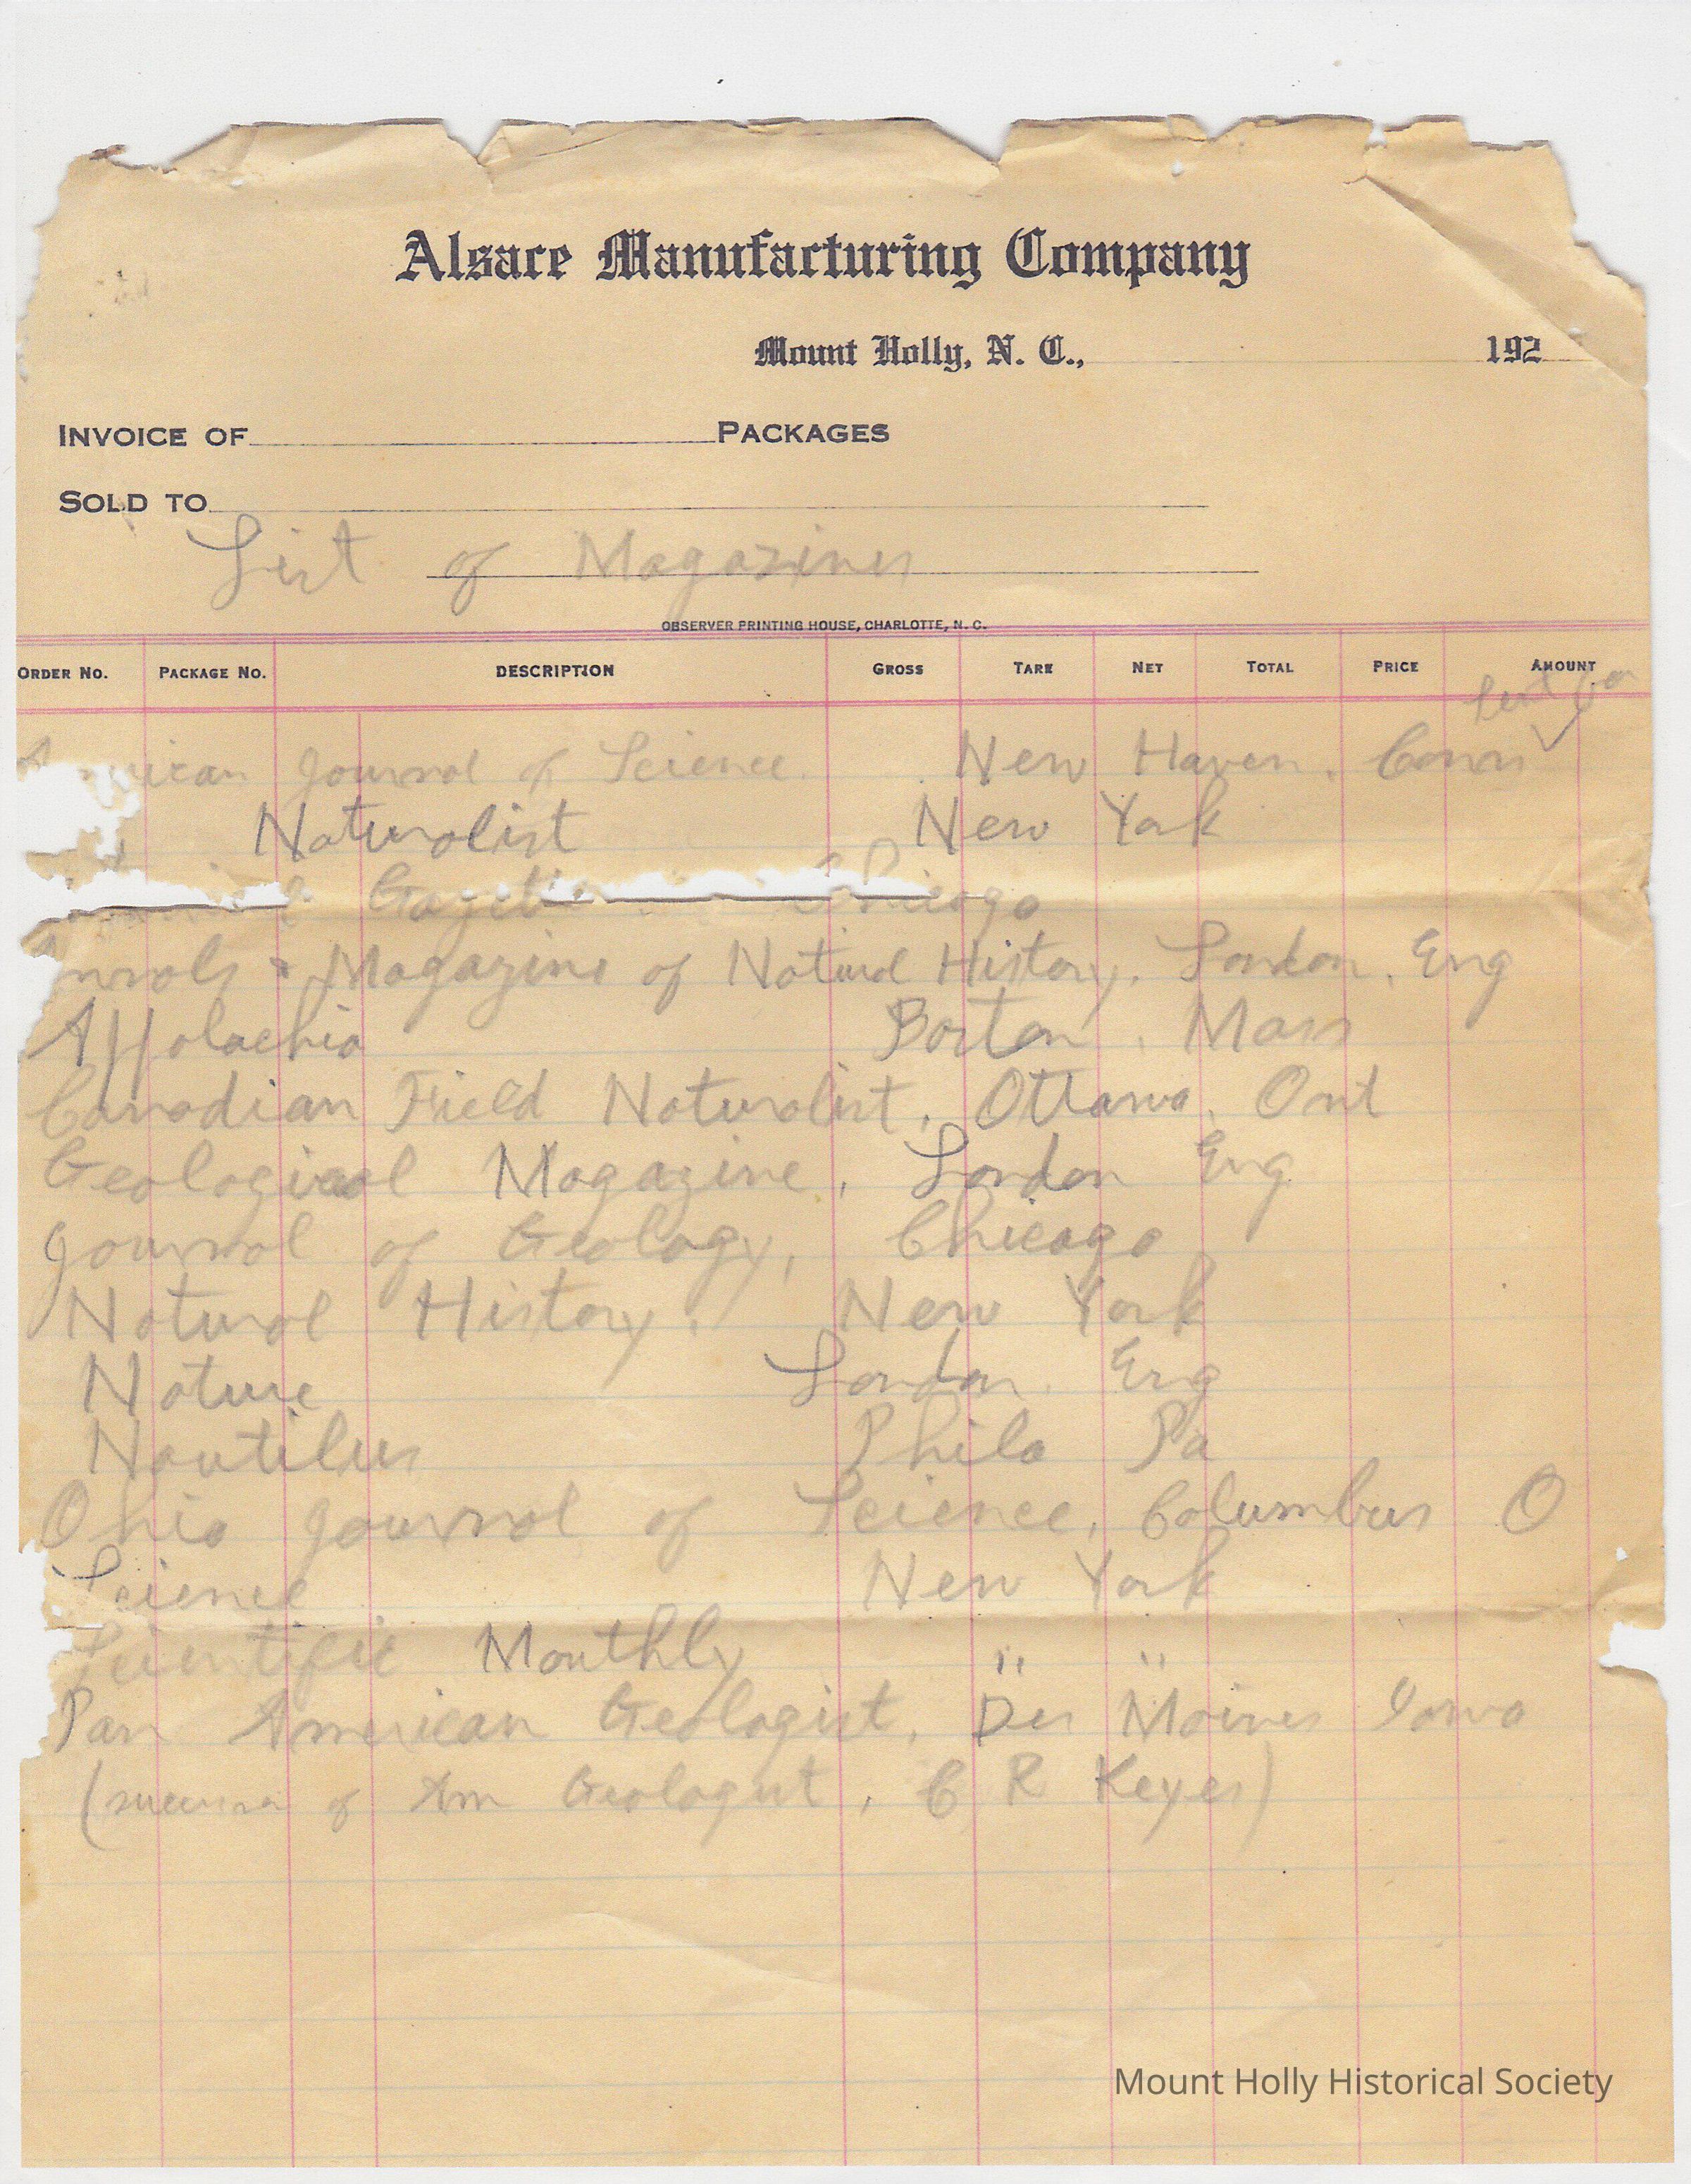 Alsace Manufacturing Company
Mount Holly, N. C., 192
INVOICE OF PACKAGES
SOLD TO
List of Magazines
OBSERVER PRINTING HOUSE, CHARLOTTE, N. C.
ORDER NO. PACKAGE NO. DESCRIPTION GROSS TARE NET TOTAL PRICE AMOUNT
sent for
Journal of Science New Haven. Conn ✓
Naturalist New York
Gazette Chicago
Magazine of Natural History, London, Eng
Appalachia Boston, Mass
Canadian Field Naturalist, Ottawa, Ont
Geological Magazine, London Eng
Journal of Geology, Chicago
Natural History. New York
Nature London. Eng
Nautilus Phila Pa
Ohio Journal of Science, Columbus O
Science New York
Scientific Monthly " "
Pan American Geologist, Des Moines Iowa
(successor of Am Geologist, C R Keyes)
Mount Holly Historical Society